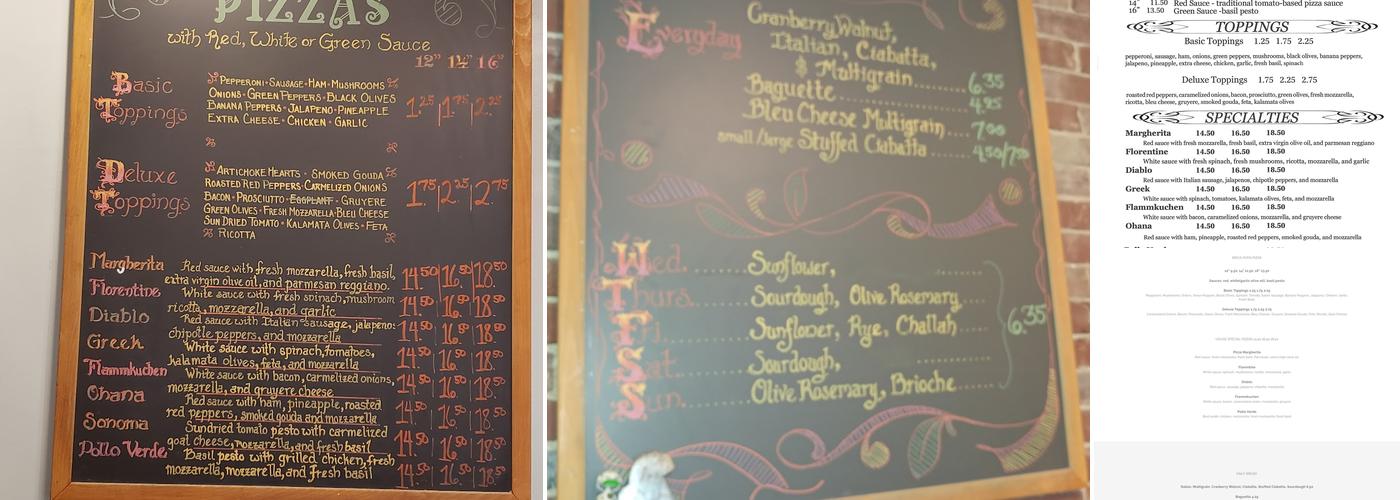 PIZZAS
with Red, White or Green Sauce
12" 14" 16"
Basic
Toppings
Pepperoni • Sausage • Ham • Mushrooms
Onions • Green Peppers • Black Olives
Banana Peppers • Jalapeno • Pineapple
Extra Cheese • Chicken • Garlic
1.25 | 1.75 | 2.25
Deluxe
Toppings
Artichoke Hearts • Smoked Gouda
Roasted Red Peppers • Carmelized Onions
Bacon • Prosciutto • Eggplant • Gruyere
Green Olives • Fresh Mozzarella • Bleu Cheese
Sun Dried Tomato • Kalamata Olives • Feta
Ricotta
1.75 | 2.25 | 2.75
Margherita Red sauce with fresh mozzarella, fresh basil, 14.50 | 16.50 | 18.50
extra virgin olive oil, and parmesan reggiano.
Florentine White sauce with fresh spinach, mushroom 14.50 | 16.50 | 18.50
ricotta, mozzarella, and garlic
Diablo Red sauce with Italian sausage, jalapeno 14.50 | 16.50 | 18.50
chipotle peppers, and mozzarella
Greek White sauce with spinach, tomatoes, 14.50 | 16.50 | 18.50
kalamata olives, feta, and mozzarella
Flammkuchen White sauce with bacon, carmelized onions, 14.50 | 16.50 | 18.50
mozzarella, and gruyere cheese
Ohana Red sauce with ham, pineapple, roasted 14.50 | 16.50 | 18.50
red peppers, smoked gouda and mozzarella
Sonoma Sundried tomato pesto with carmelized 14.50 | 16.50 | 18.50
goat cheese, mozzarella, and fresh basil
Pollo Verde Basil pesto with grilled chicken, fresh 14.50 | 16.50 | 18.50
mozzarella, mozzarella, and fresh basil
Everyday
Cranberry Walnut,
Italian, Ciabatta,
& Multigrain........ 6.35
Baguette................ 4.25
Bleu Cheese Multigrain.... 7.00
small/large Stuffed Ciabatta...... 4.50/7.50
Wed. Sunflower,
Thurs. Sourdough, Olive Rosemary
Fri. Sunflower, Rye, Challah 6.35
Sat. Sourdough,
Sun. Olive Rosemary, Brioche
14" 11.50 Red Sauce - traditional tomato-based pizza sauce
16" 13.50 Green Sauce -basil pesto
TOPPINGS
Basic Toppings 1.25 1.75 2.25
pepperoni, sausage, ham, onions, green peppers, mushrooms, black olives, banana peppers,
jalapeno, pineapple, extra cheese, chicken, garlic, fresh basil, spinach
Deluxe Toppings 1.75 2.25 2.75
roasted red peppers, caramelized onions, bacon, prosciutto, green olives, fresh mozzarella,
ricotta, bleu cheese, gruyere, smoked gouda, feta, kalamata olives
SPECIALTIES
Margherita 14.50 16.50 18.50
Red sauce with fresh mozzarella, fresh basil, extra virgin olive oil, and parmesan reggiano
Florentine 14.50 16.50 18.50
White sauce with fresh spinach, fresh mushrooms, ricotta, mozzarella, and garlic
Diablo 14.50 16.50 18.50
Red sauce with Italian sausage, jalapenos, chipotle peppers, and mozzarella
Greek 14.50 16.50 18.50
White with spinach, tomatoes, kalamata olives, feta, and mozzarella
Flammkuchen 14.50 16.50 18.50
White sauce with bacon, caramelized onions, mozzarella, and gruyere cheese
Ohana 14.50 16.50 18.50
Red sauce with ham, pineapple, roasted red peppers, smoked gouda, and mozzarella
Pizza Margherita
Florentine
Diablo
Flammkuchen
Pollo Verde